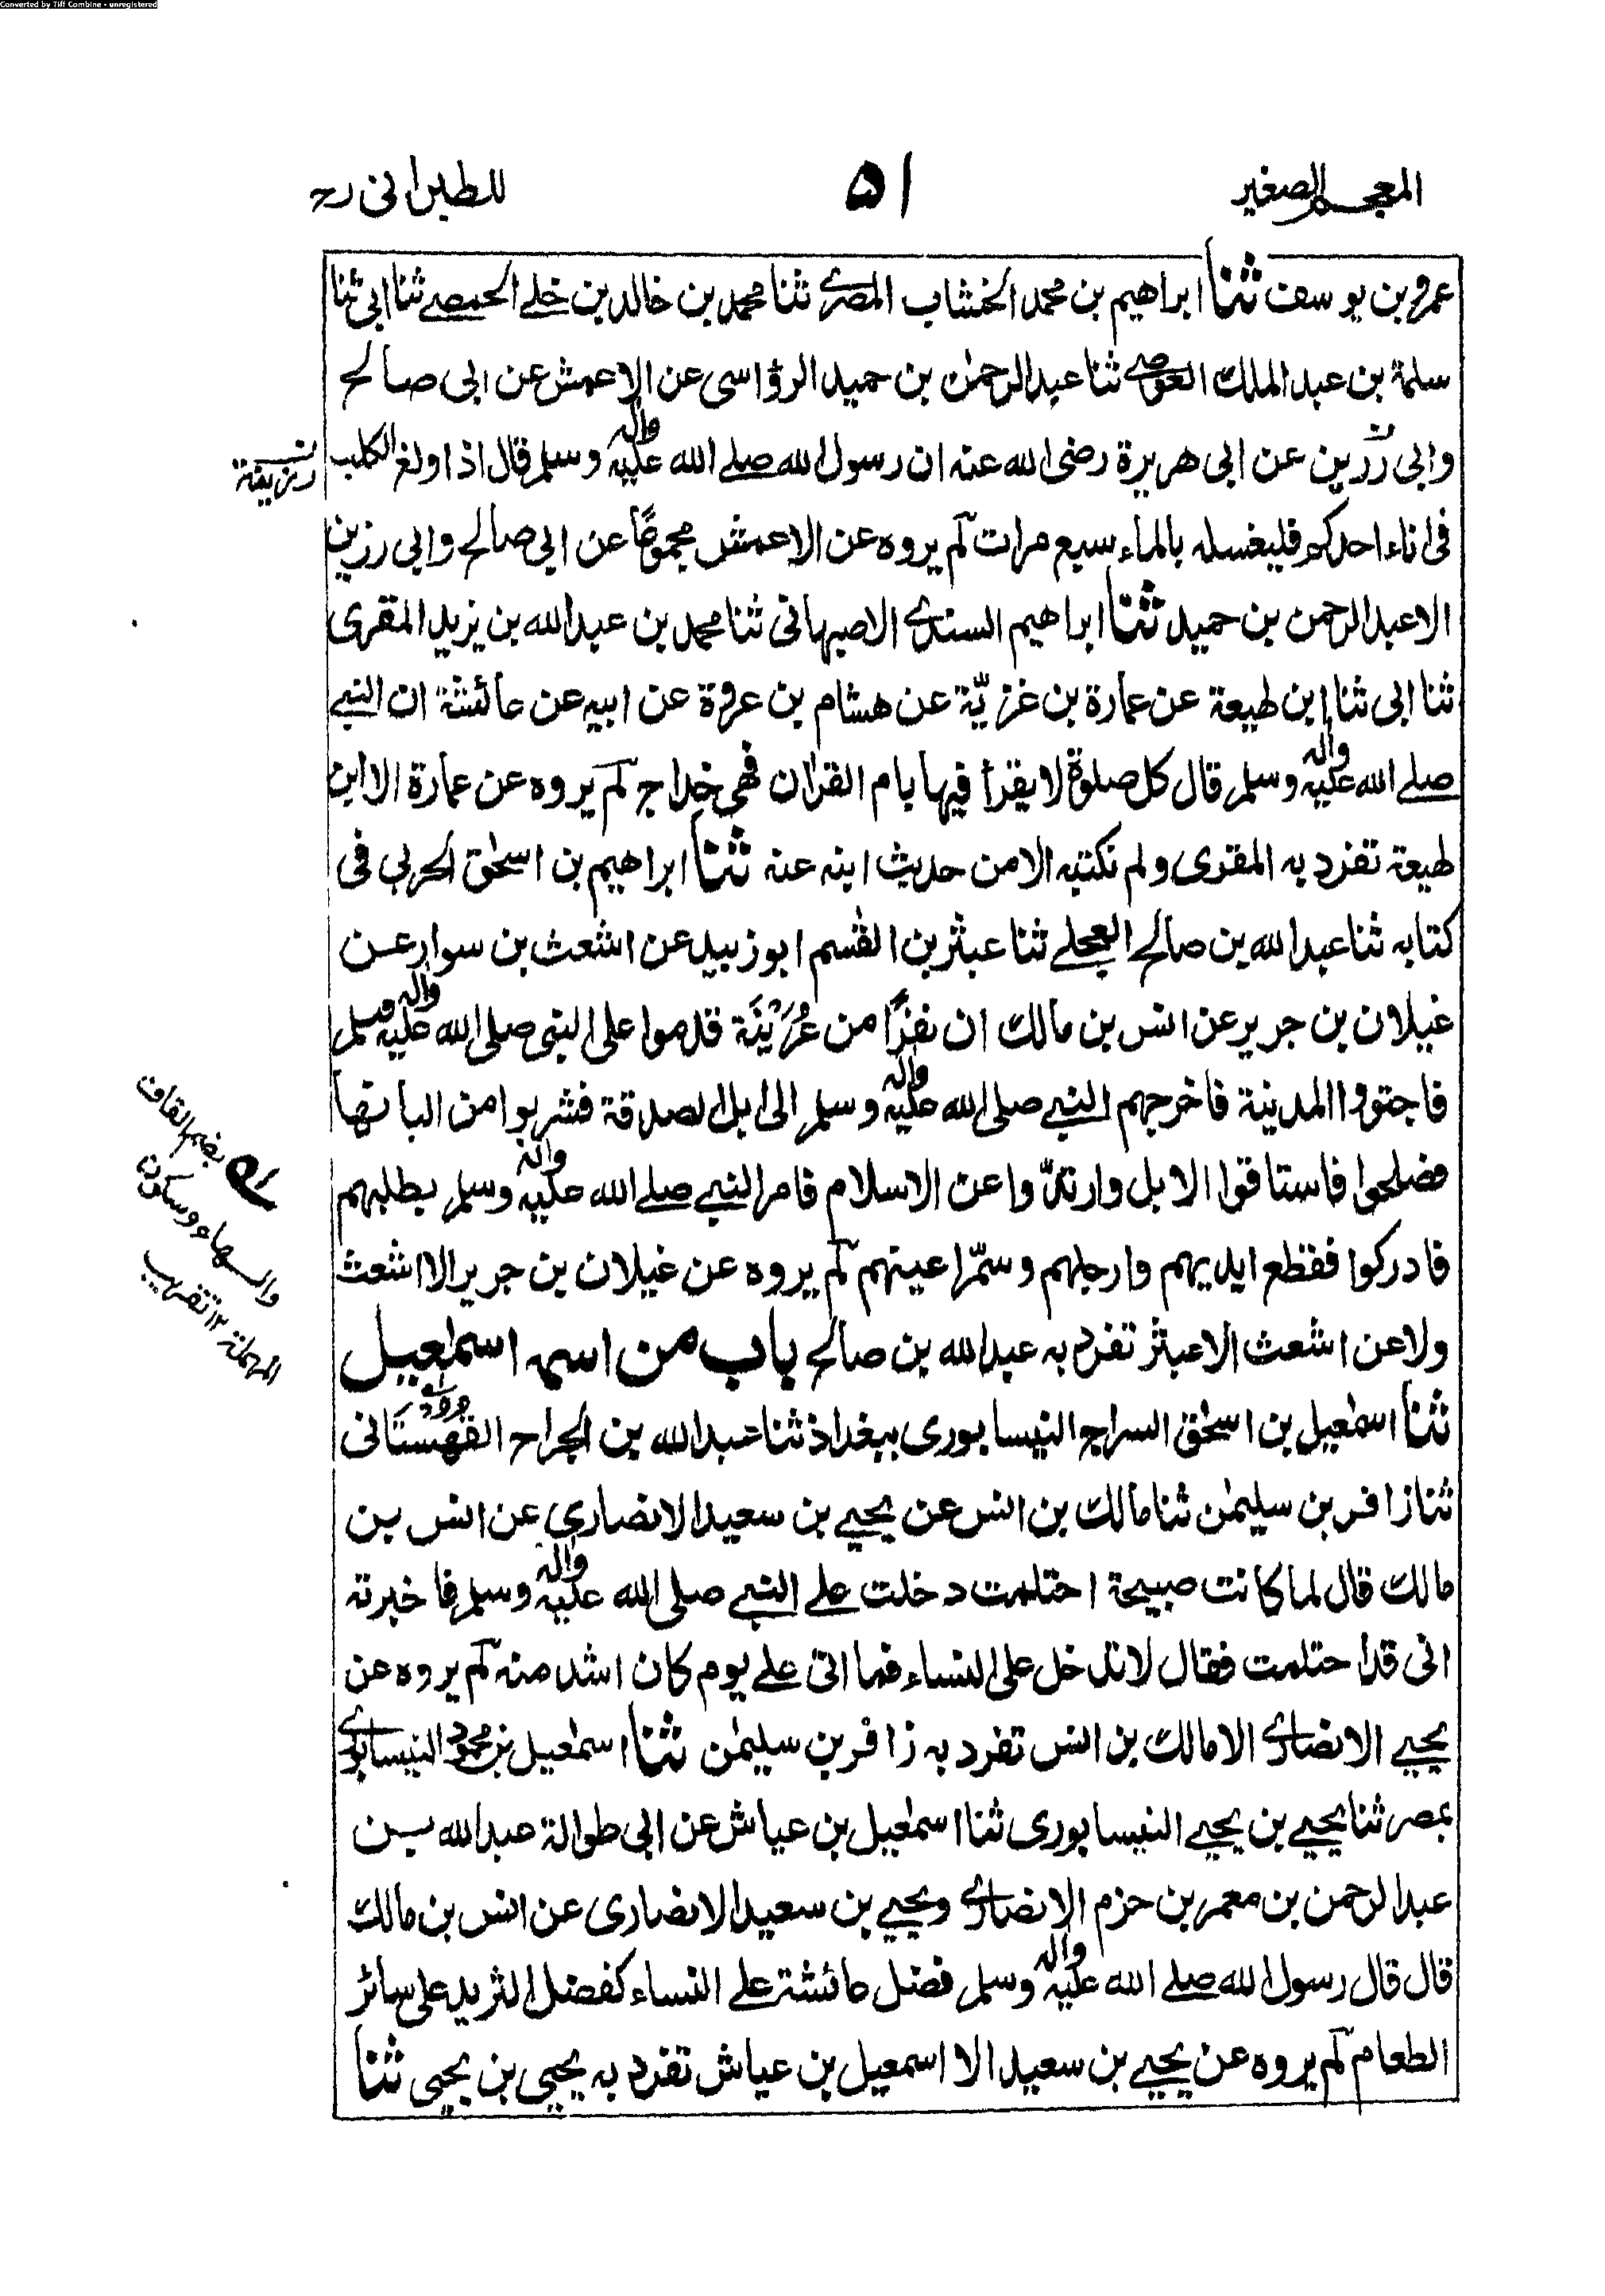 Converted by Tiff Combine - unregistered
المعجم الصغير
٥١
للطبرانى رح
عمرو بن يوسف ثنا ابراهيم بن محمد الخشاب المصرى ثنا محمد بن خالد بن خلى الحمصى ثنا ابى ثنا
سلمة بن عبد الملك العوصى ثنا عبد الرحمن بن حميد الرؤاسى عن الاعمش عن ابى صالح
وابى رزين عن ابى هريرة رضى الله عنه ان رسول الله صلے الله عليه واله وسلم قال اذا ولغ الكلب
فى اناء احدكم فليغسله بالماء سبع مرات لم يروه عن الاعمش مجموعًا عن ابى صالح وابى رزين
الا عبد الرحمن بن حميد ثنا ابراهيم السندى الاصبهانى ثنا محمد بن عبد الله بن يزيد المقرى
ثنا ابى ثنا ابن لهيعة عن عمارة بن غزيّة عن هشام بن عروة عن ابيه عن عائشة ان النبے
صلے الله عليه واله وسلم قال كل صلوة لا يقرأ فيها بام القران فهى خداج لم يروه عن عمارة الا ابن
لهيعة تفرد به المقرى ولم نكتبه الا من حديث ابنه عنه ثنا ابراهيم بن اسحٰق الحربى فى
كتابه ثنا عبد الله بن صالح العجلے ثنا عبثر بن القٰسم ابو زبيد عن اشعث بن سوار عن
غيلان بن جرير عن انس بن مالك ان نفرًا من عُرَيْنَة قدموا على النبى صلى الله عليه واله وسلم
فاجتووا المدينة فاخرجهم النبے صلى الله عليه واله وسلم الى ابل الصدقة فشربوا من البانها
فصلحوا فاستاقوا الابل وارتدّوا عن الاسلام فامر النبے صلے الله عليه واله وسلم بطلبهم
فادركوا فقطع ايديهم وارجلهم وسمّر اعينهم لم يروه عن غيلان بن جرير الا اشعث
ولا عن اشعث الا عبثر تفرد به عبد الله بن صالح باب من اسمه اسمٰعيل
ثنا اسمٰعيل بن اسحٰق السراج النيسابورى ببغداذ ثنا عبد الله بن الجراح القهستانى
ثنا زافر بن سليمٰن ثنا مالك بن انس عن يحيے بن سعيد الانصارى عن انس بن
مالك قال لما كانت صبيحة احتلمت دخلت علے النبے صلى الله عليه واله وسلم فاخبرته
انى قد احتلمت فقال لا تدخل على النساء فما اتى علے يوم كان اشد منه لم يروه عن
يحيے الانصارى الا مالك بن انس تفرد به زافر بن سليمٰن ثنا اسمٰعيل بن محمود النيسابورى
بمصر ثنا يحيے بن يحيے النيسابورى ثنا اسمٰعيل بن عياش عن ابى طوالة عبد الله بن
عبد الرحمن بن معمر بن حزم الانصارى ويحيے بن سعيد الانصارى عن انس بن مالك
قال قال رسول الله صلے الله عليه واله وسلم فضل عائشة علے النساء كفضل الثريد على سائر
الطعام لم يروه عن يحيے بن سعيد الا اسمعيل بن عياش تفرد به يحيى بن يحيى ثنا
بضم القاف
والهاء وسكون
المهملة ١٢ تقريب